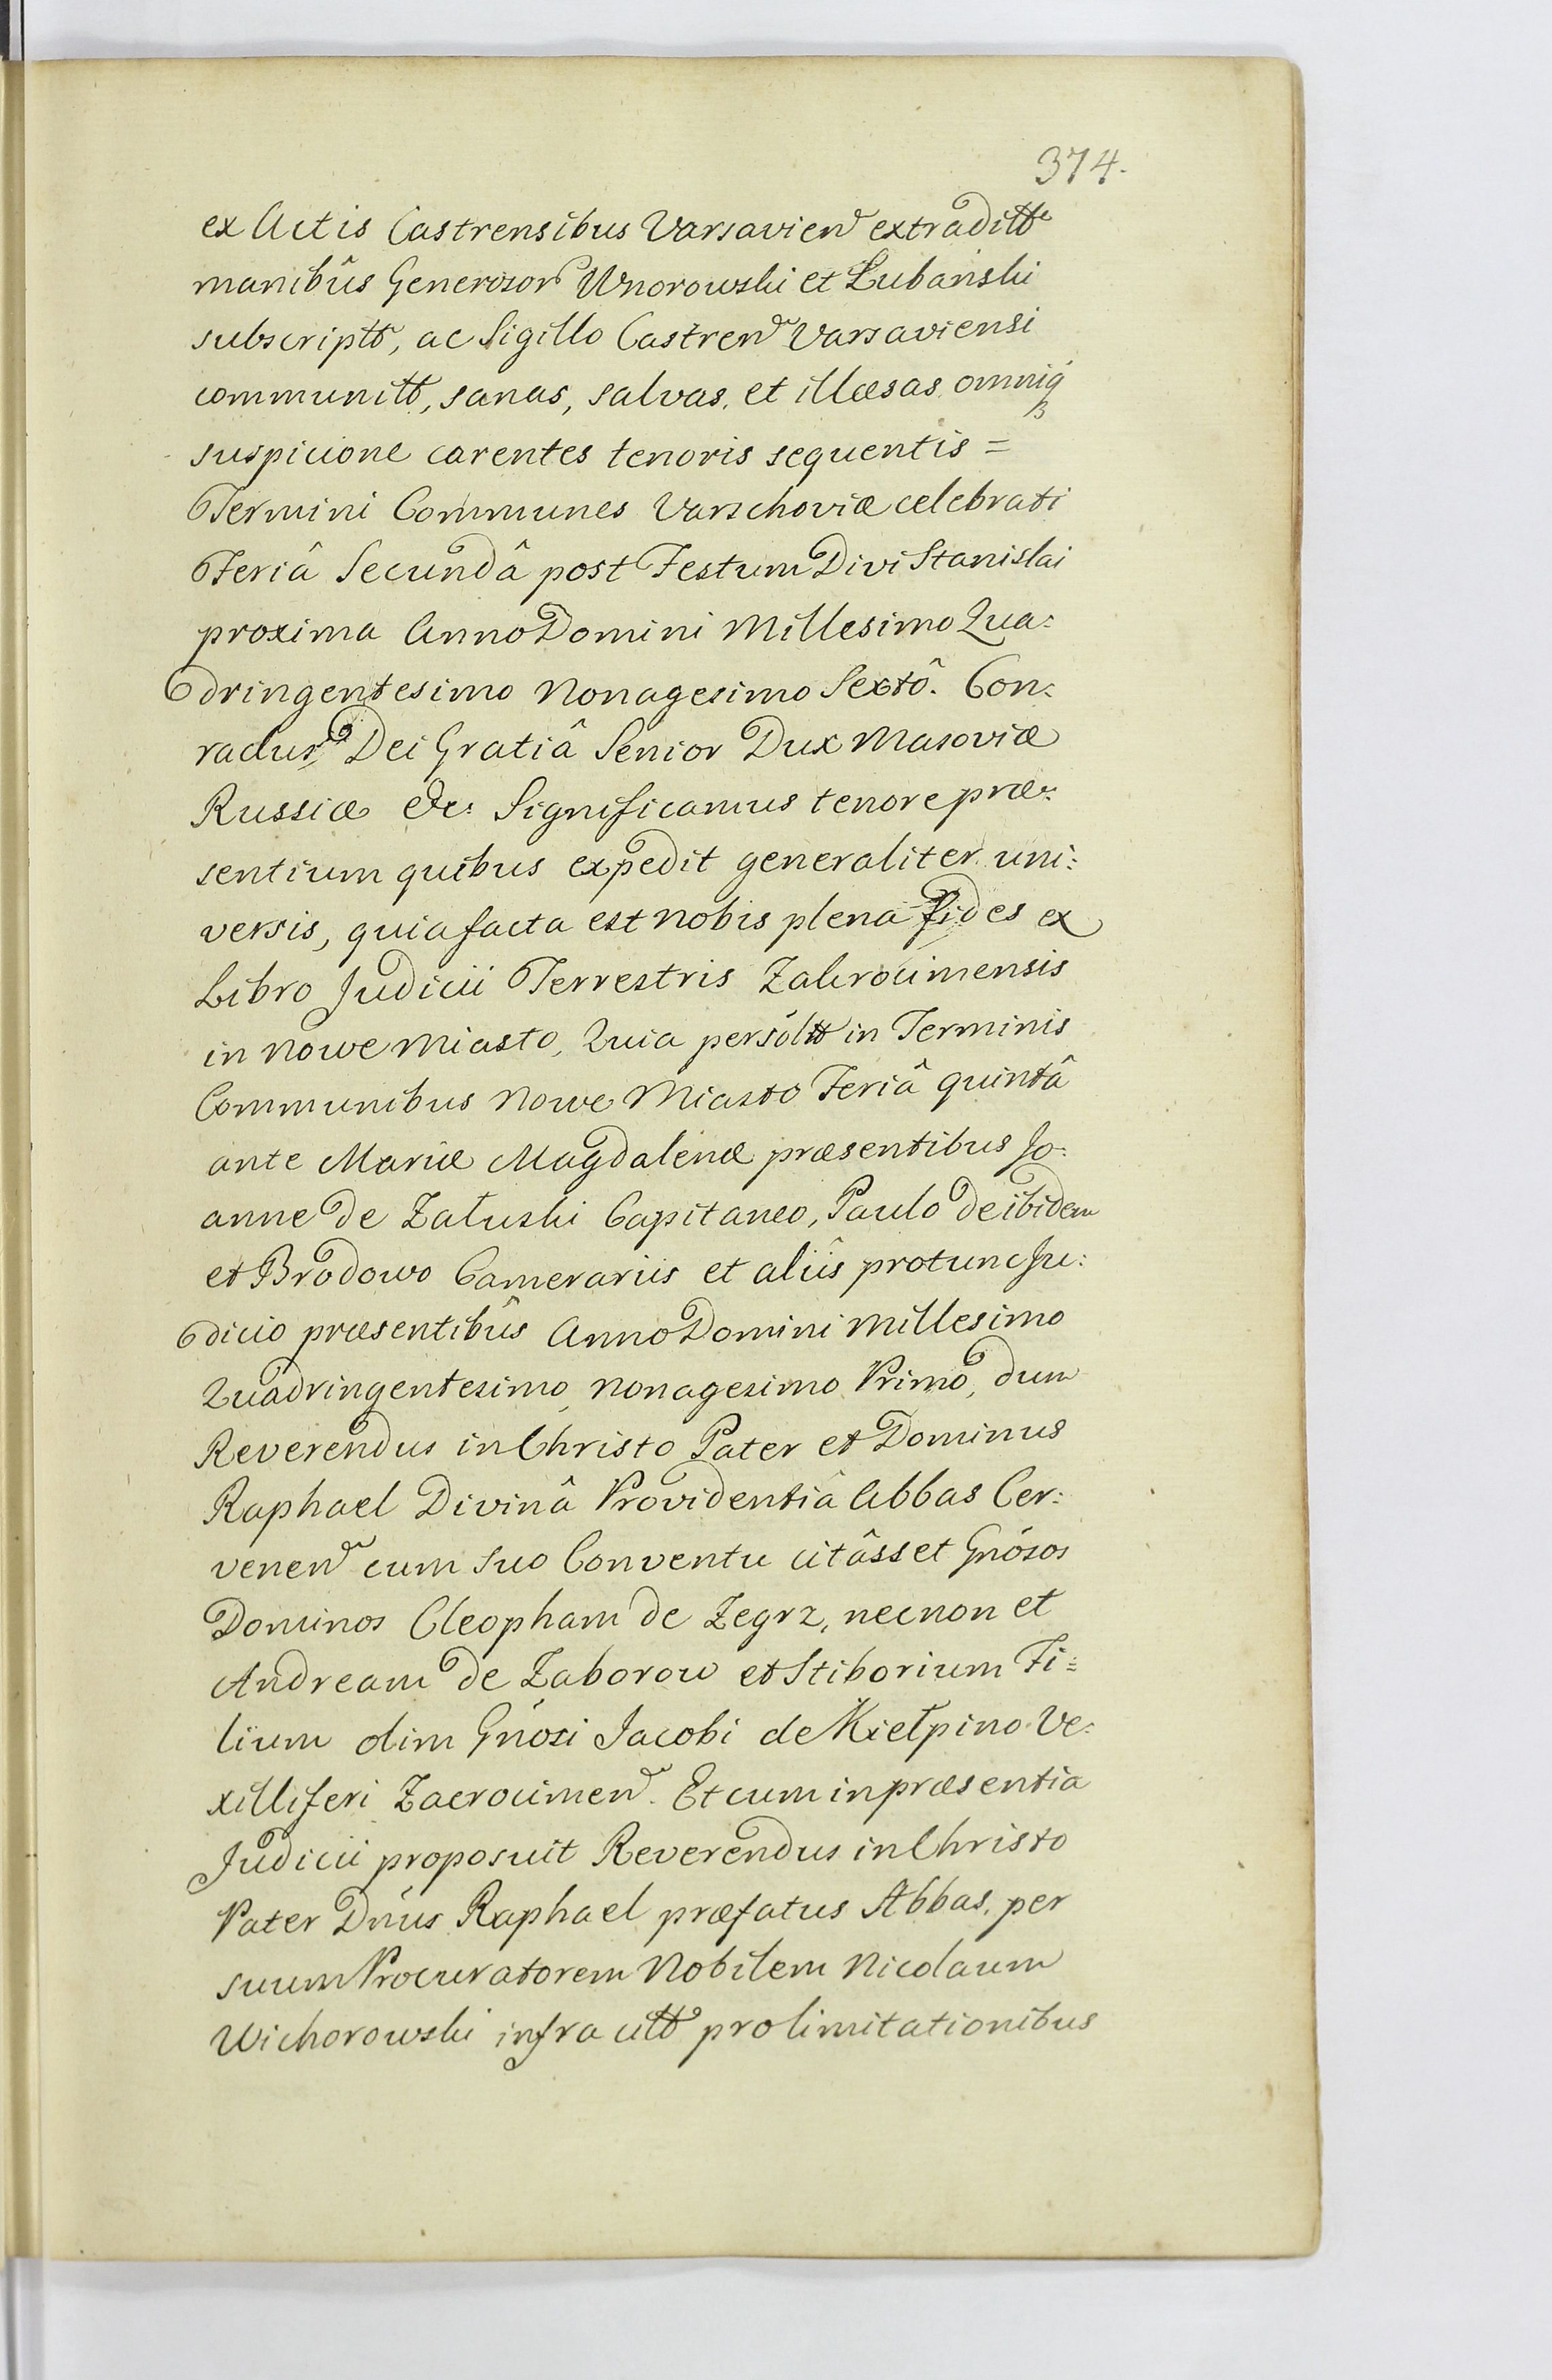 374.
ex Actis Castrensibus Varsavien extraditt
manibûs Generosor Wnorowski et Łubański
subscriptt, ac Sigillo Castren Varsaviensi
communitt, sanas, salvas, et illæsas omniq
suspicione carentes tenoris sequentis =
Termini Communes Varschoviæ celebrati
Feriâ Secundâ post Festum Divi Stanislai
proxima Anno Domini Millesimo Qua:
dringentesimo Nonagesimo Sextô. Con:
radus, Dei Gratiâ Senior Dux Masoviæ
Russiæ &c: Significamus tenore præ:
sentium quibus expedit generaliter uni:
versis, quia facta est nobis plena fides ex
Libro Judicii Terrestris Zakrocimensis
in Nowe Miasto, Quia persoltt in Terminis
Communibus Nowe Miasto Feriâ quintâ
ante Mariæ Magdalenæ præsentibus Jo:
anne de Załuski Capitaneo, Paulo de ibidem
et Brodowo Camerariis et aliis protunc Ju:
dicio præsentibûs Anno Domini Millesimo
Quadringentesimo, Nonagesimo Primo, dum
Reverendus in Christo Pater et Dominus
Raphael Divinâ Providentiâ Abbas Cer:
venen cum suo Conventu citâsset Gnósos
Dominos Cleopham de Zegrz, necnon et
Andream de Zaborow et Stiborium Fi=
lium olim Gnósi Jacobi de Kiełpino Ve:
xilliferi Zacrocimen. Et cum in præsentia
Judicii proposuit Reverendus in Christo
Pater Dnús Raphael præfatus Abbas, per
suum Procuratorem Nobilem Nicolaum
Wichorowski infra citt pro limitationibus